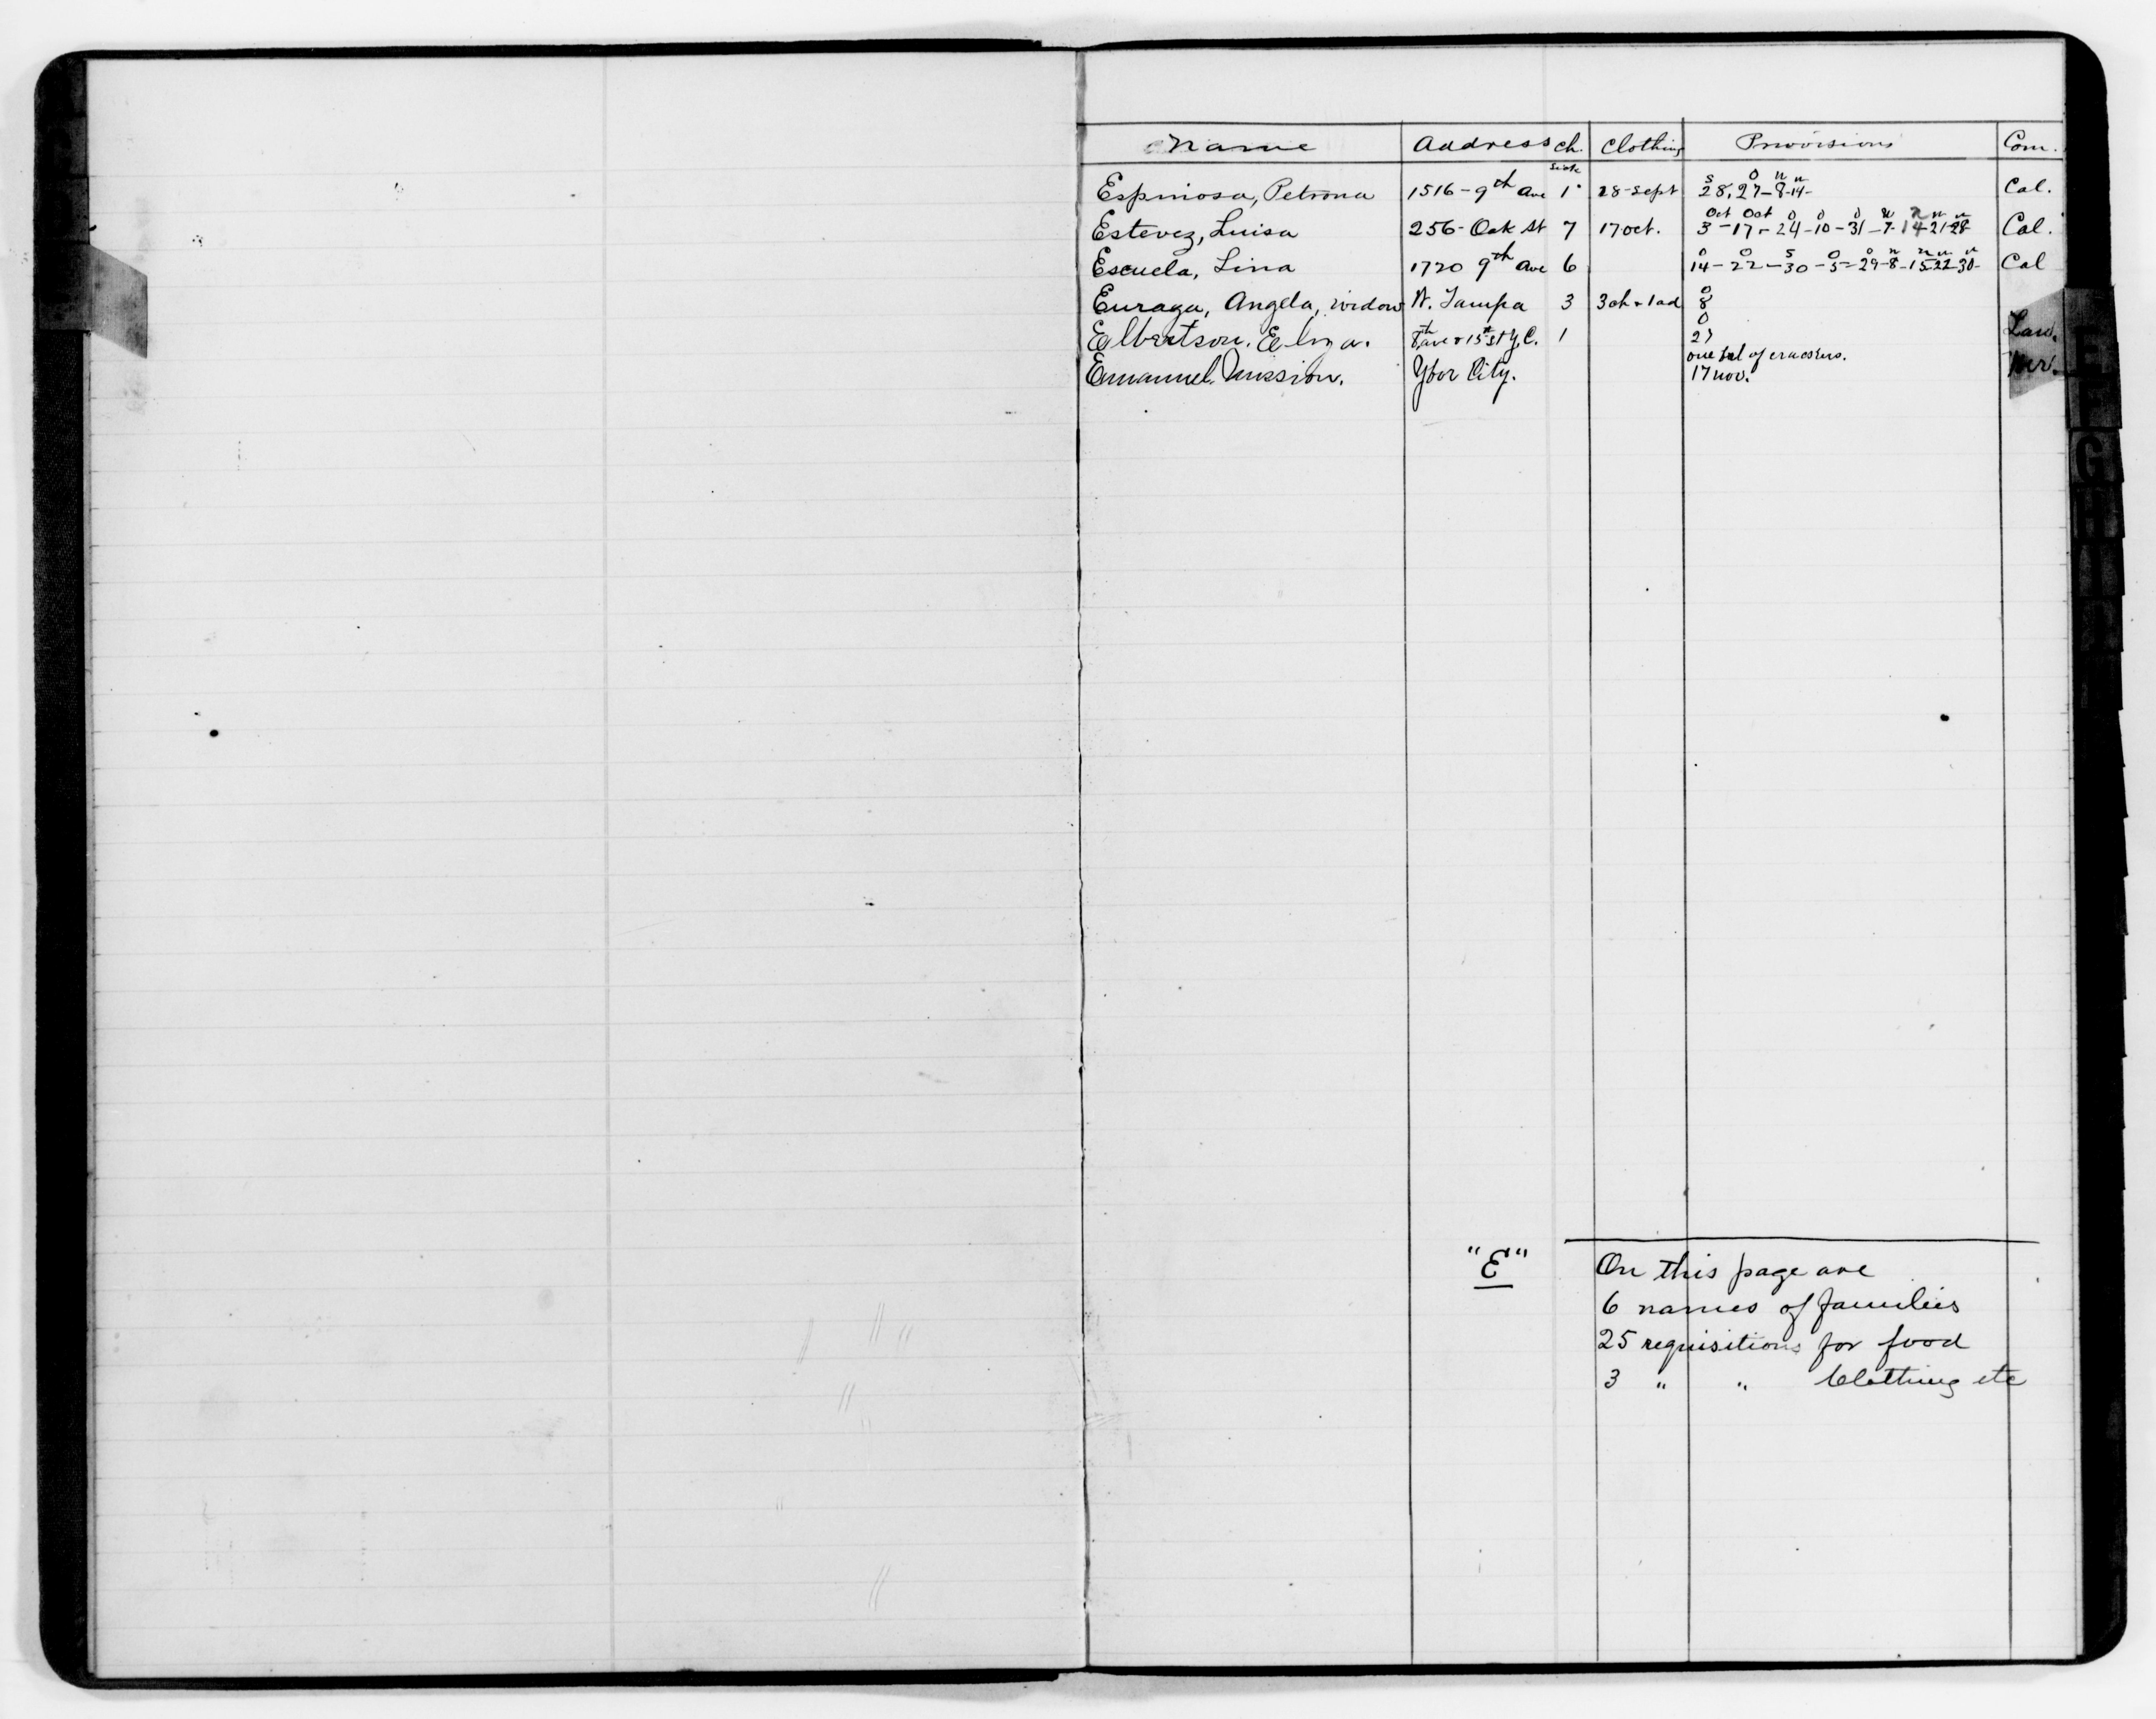 Name Address ch. Clothing Provisions Com.
sick
S O n n
Espinosa, Petrona 1516-9th Ave 1 28-Sept 28, 27-8-14- Cal.
Oct Oct O O O n n n n
Estevez, Luisa 256-Oak St 7 17 oct. 3-17-24-10-31-7-14-21-28 Cal.
O O S O O n n n n
Escuela, Lina 1720 9th Ave 6 14-22-30-5-29-8-15-22-30- Cal
O
Euraga, Angela, widow W. Tampa 3 3ch & 1ad 8
O
Elbertson, Eliza. 8th ave & 15th St Y.C. 1 27 Law.
one bbl of crackers.
Emanuel Mission. Ybor City. 17 nov. Mer.
"E"
On this page are
6 names of families
25 requisitions for food
3 " " Clothing etc
E
F
G
H